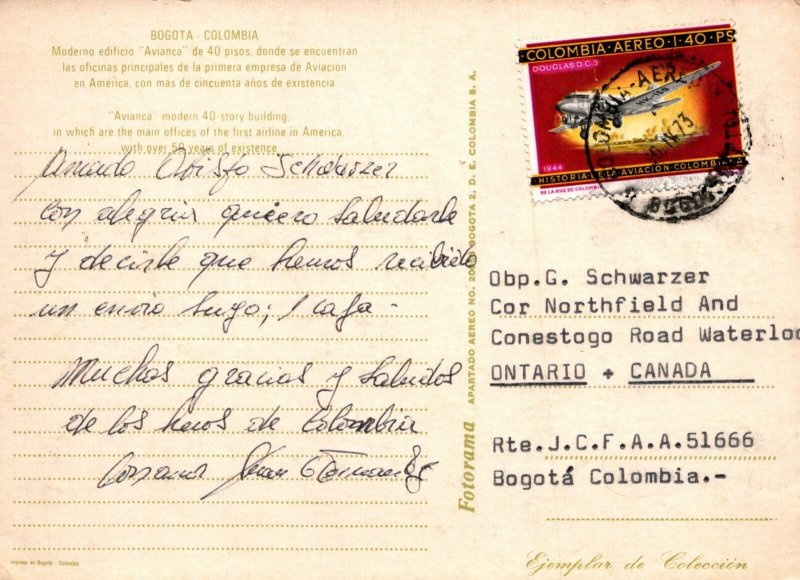 BOGOTA - COLOMBIA
Moderno edificio "Avianca" de 40 pisos, donde se encuentran
las oficinas principales de la primera empresa de Aviación
en América, con más de cincuenta años de existencia.
"Avianca" modern 40-story building,
in which are the main offices of the first airline in America,
with over 50 years of existence.
Amado Obispo Schwarzer
con alegria quiero saludarle
y decirle que hemos recibido
un envio suyo; 1 caja -
Muchas gracias y saludos
de los hnos de Colombia
Juan
Impreso en Bogotá - Colombia
Fotorama
APARTADO AEREO NO. BOGOTA 2, D. E. COLOMBIA S. A.
COLOMBIA · AEREO · 1·40·PS
DOUGLAS D.C.3
1944
HISTORIA DE LA AVIACION COLOMBIANA
DE LA RUE DE COLOMBIA
Obp.G. Schwarzer
Cor Northfield And
Conestogo Road Waterloo
ONTARIO + CANADA
Rte.J.C.F.A.A.51666
Bogotá Colombia.-
Ejemplar de Colección